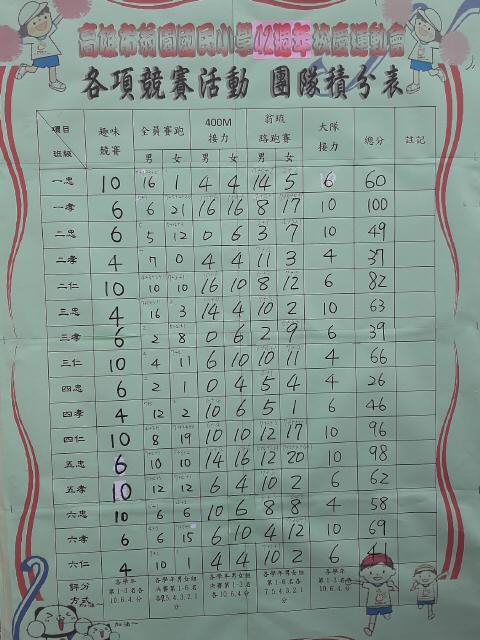 高雄市翁園國民小學42週年校慶運動會
各項競賽活動 團隊積分表
項目 班級 趣味競賽 全員賽跑 400M接力 翁琉路跑賽 大隊接力 總分 註記
男 女 男 女 男 女
一忠 10 16 1 4 4 14 5 6 60
一孝 6 6 21 16 16 8 17 10 100
二忠 6 5 12 0 6 3 7 10 49
二孝 4 7 0 4 4 11 3 4 37
二仁 10 10 10 16 10 8 12 6 82
三忠 4 16 3 14 4 10 2 10 63
三孝 6 2 8 0 6 2 9 6 39
三仁 10 4 11 6 10 10 11 4 66
四忠 6 2 1 0 4 5 4 4 26
四孝 4 12 2 10 6 5 1 6 46
四仁 10 8 19 10 10 12 17 10 96
五忠 6 10 10 14 16 12 20 10 98
五孝 10 12 12 6 4 10 2 6 62
六忠 10 6 6 10 6 8 8 4 58
六孝 6 6 15 6 10 4 12 10 69
六仁 4 10 1 4 4 10 2 6 41
評分方式 各學年第1-3名各10.6.4.分 各學年男女組決賽第1-6名各7.5.4.3.2.1分 各學年男女組決賽第1-3名各10.6.4.分 各學年男女組第1-6名各7.5.4.3.2.1分 各學年第1-3名各10.6.4.分
加油~